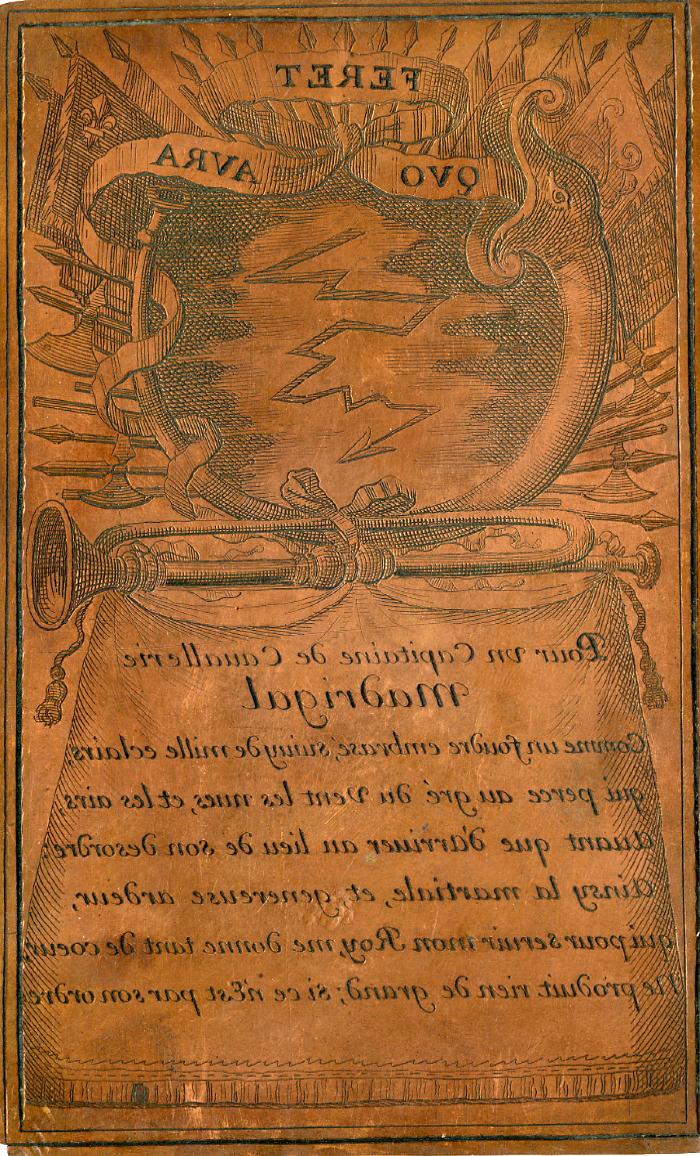 FERET
QVO AVRA
Pour vn Capitaine de Cauallerie
Madrigal
Comme un foudre embrasé, suiuy de mille eclairs
qui perce au gré du vent les nues, et les airs;
Auant que d'arriuer au lieu de son desordre;
Ainsy la martiale, et genereuse ardeur,
qui pour seruir mon Roy, me donne tant de coeur,
Ne produit rien de grand; si ce n'Est par son ordre